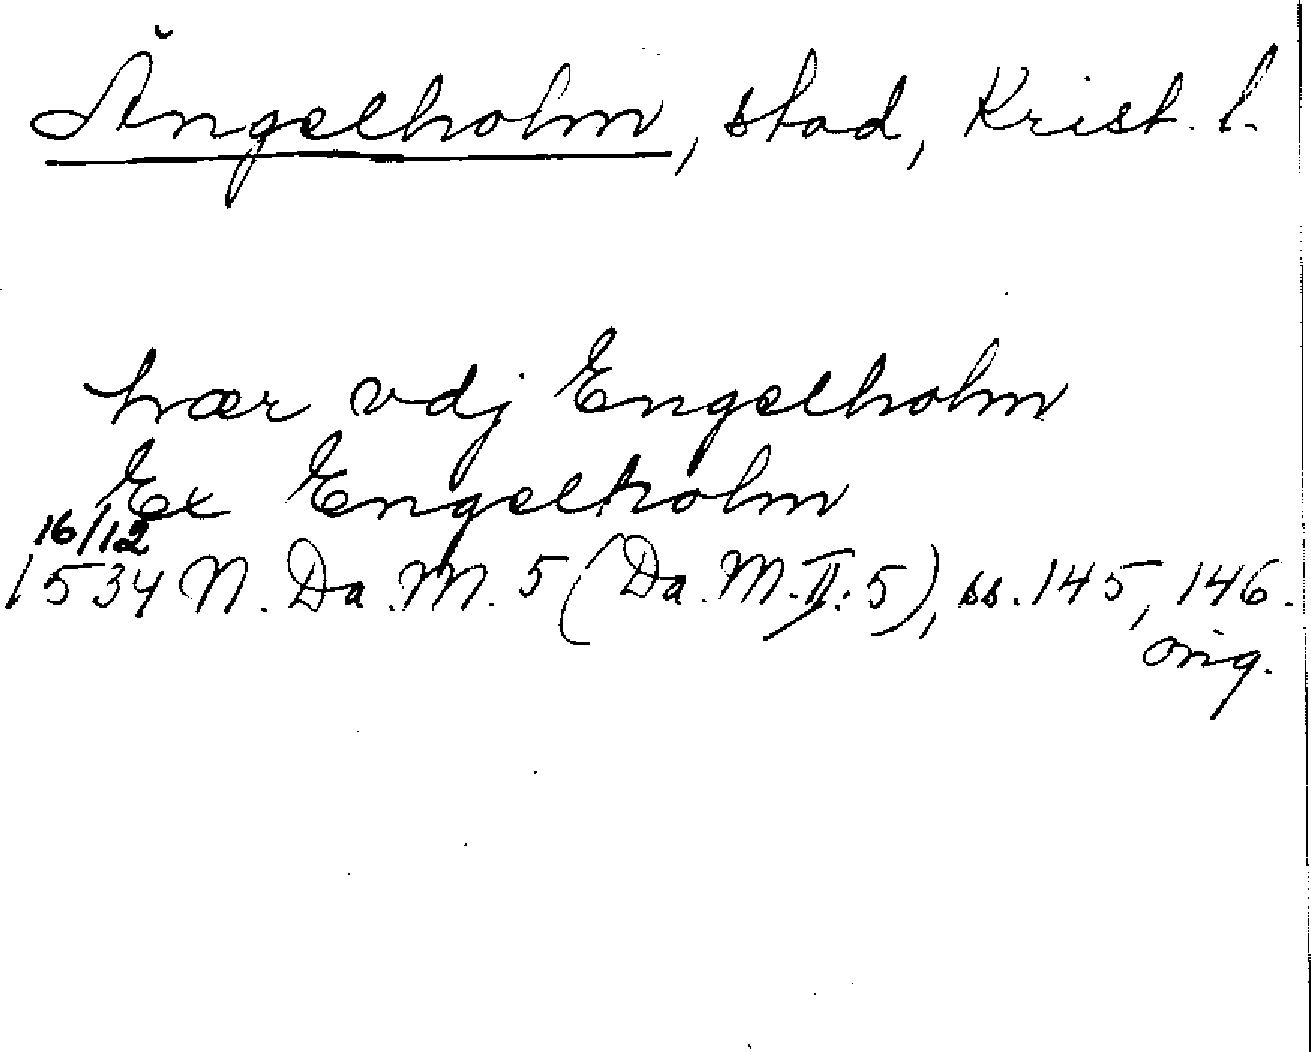 Ängelholm, stad, Krist. l.
hær vdj Engelholm
Ex Engelholm
16/12
1534 N. Da. M. 5 (Da. M. II. 5), ss. 145, 146.
orig.